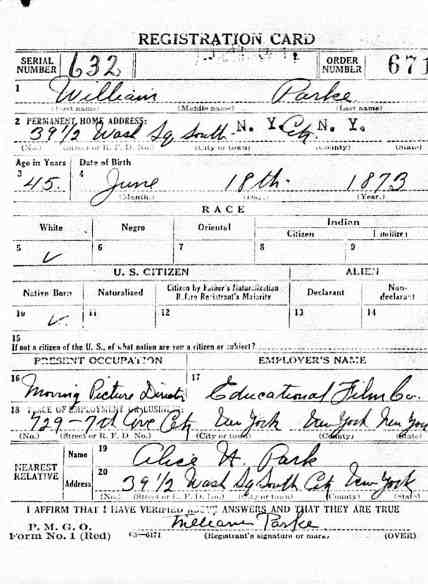 REGISTRATION CARD
SERIAL NUMBER 632 ORDER NUMBER 671
1 William Parke
(First name) (Middle name) (Last name)
2 PERMANENT HOME ADDRESS:
39 1/2 Wash Sq South N. Y. City N. Y.
(No.) (Street or R. F. D. No.) (City or town) (County) (State)
Age in Years Date of Birth
3 45. 4 June 18th. 1873
(Month.) (Day.) (Year.)
RACE
White Negro Oriental Indian
Citizen
5 ✓ 6 7 8 9
U. S. CITIZEN ALIEN
Native Born Naturalized Citizen by Father's Naturalization Before Registrant's Majority Declarant Non-declarant
10 ✓ 11 12 13 14
15
If not a citizen of the U. S., of what nation are you a citizen or subject?
PRESENT OCCUPATION EMPLOYER'S NAME
16 Moving Picture Director 17 Educational Film Co.
18 PLACE OF EMPLOYMENT OR BUSINESS:
729 - 7th Ave City New York New York New York
(No.) (Street or R. F. D. No.) (City or town) (County) (State)
NEAREST RELATIVE Name 19 Alice H. Park
Address 20 39 1/2 Wash Sq South City New York
(No.) (Street or R. F. D. No.) (City or town) (County) (State)
I AFFIRM THAT I HAVE VERIFIED ABOVE ANSWERS AND THAT THEY ARE TRUE
P. M. G. O. William Parke
Form No. 1 (Red) 03—6171 (Registrant's signature or mark) (OVER)